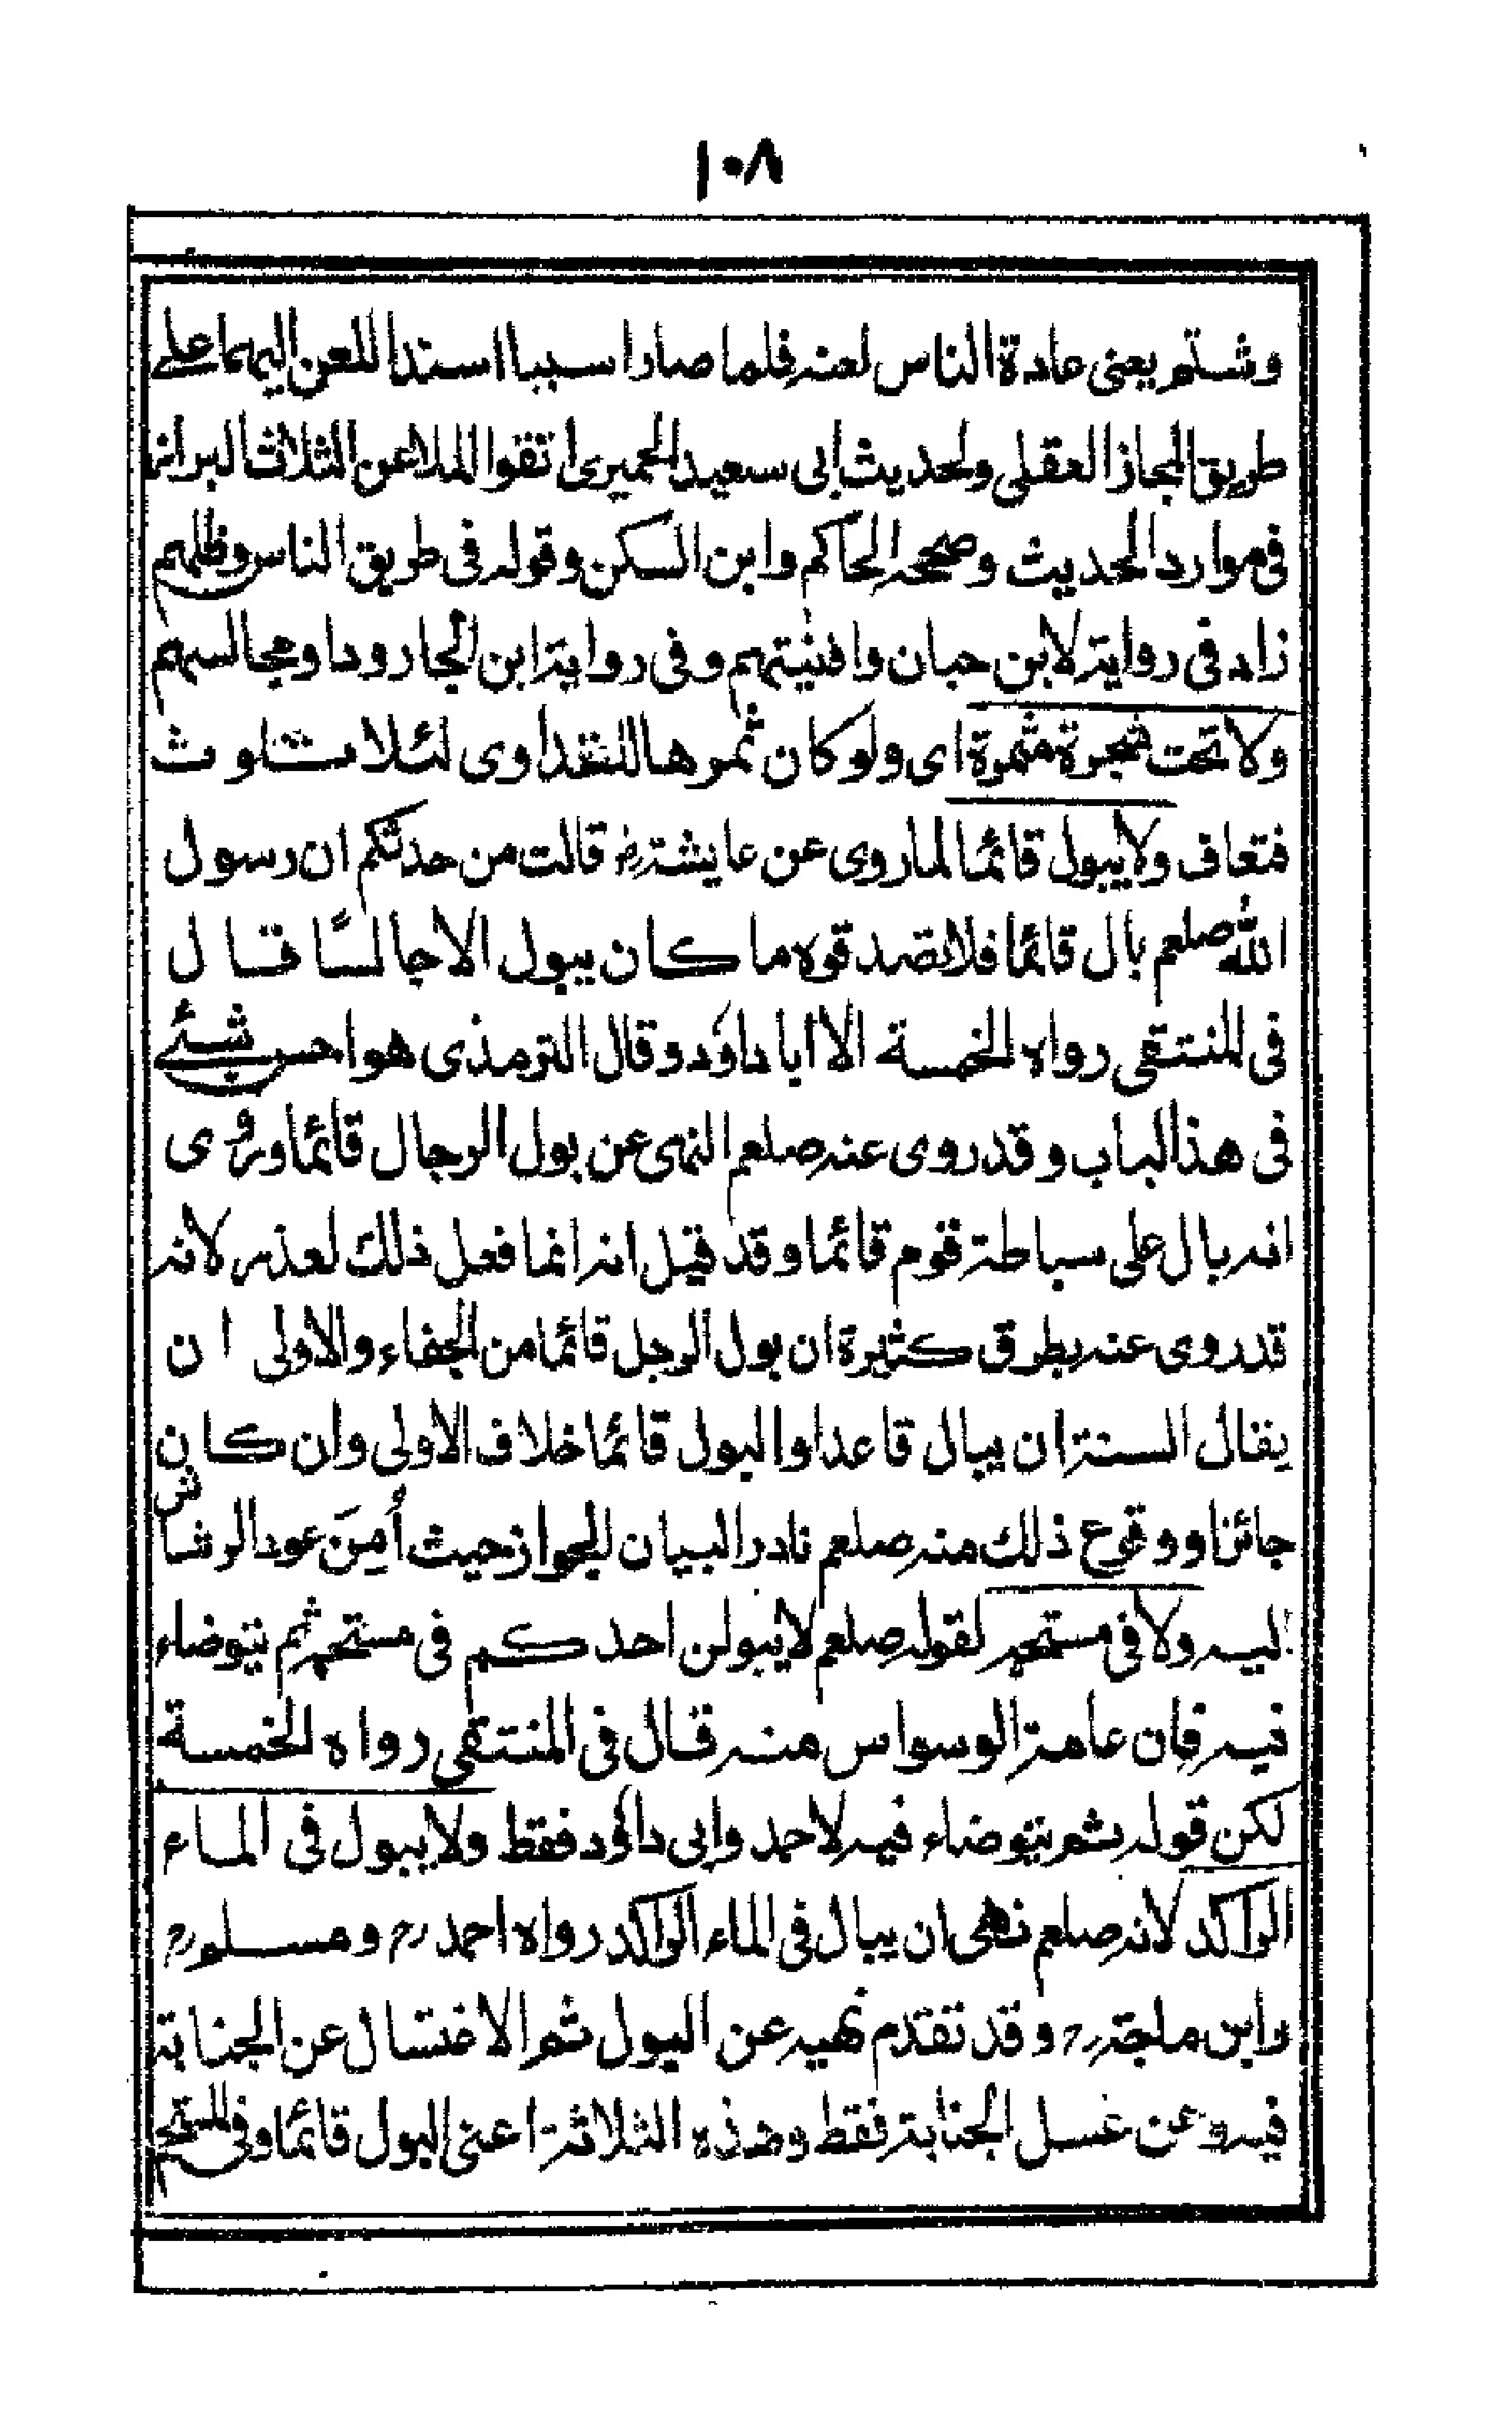 ١٠٨
وشتم يعنى عادة الناس لعنه فلما صارا سببا استدا اللعن اليهما على
طريق المجاز العقلى ولحديث ابى سعيد الحميرى اتقوا الملاعن الثلاث البراز
فى موارد الحديث وصححه الحاكم وابن السكن وقوله فى طريق الناس وظلهم
زاد فى رواية لابن حبان وافنيتهم وفى رواية ابن الجارود او مجالسهم
ولا تحت شجرة مثمرة اى ولو كان ثمرها للتداوى لئلا تتلوث
فتعاف ولا يبول قائما لما روى عن عايشة رض قالت من حدثكم ان رسول
الله صلعم بال قائما فلا تصدقوه ما كان يبول الا جالسًا قال
فى المنتقى رواه الخمسة الا ابا داؤد وقال الترمذى هو احسن شئے
فى هذا الباب وقد روى عنه صلعم النهى عن بول الرجال قائما وروى
انه بال على سباطة قوم قائما وقد قيل انه انما فعل ذلك لعذر لانه
قد روى عنه بطرق كثيرة ان بول الرجل قائما من الجفاء والاولى ان
يقال السنة ان يبال قاعدا والبول قائما خلاف الاولى وان كان
جائزا ووقوع ذلك منه صلعم نادر البيان للجواز حيث أمِنَ عود الرشاش
اليه ولا فى مستحم لقوله صلعم لا يبولن احدكم فى مستحمه ثم يتوضاء
فيه فان عامة الوسواس منه قال فى المنتقى رواه الخمسة
لكن قوله ثم يتوضاء فيه لاحمد وابى داؤد فقط ولا يبول فى الماء
الراكد لانه صلعم نهى ان يبال فى الماء الراكد رواه احمد رح ومسلم رح
وابن ماجة رح وقد تقدم نهيه عن البول ثم الاغتسال عن الجنابة
فيه وعن غسل الجنابة فقط وهذه الثلاثة اعنى البول قائما وفى المستحم